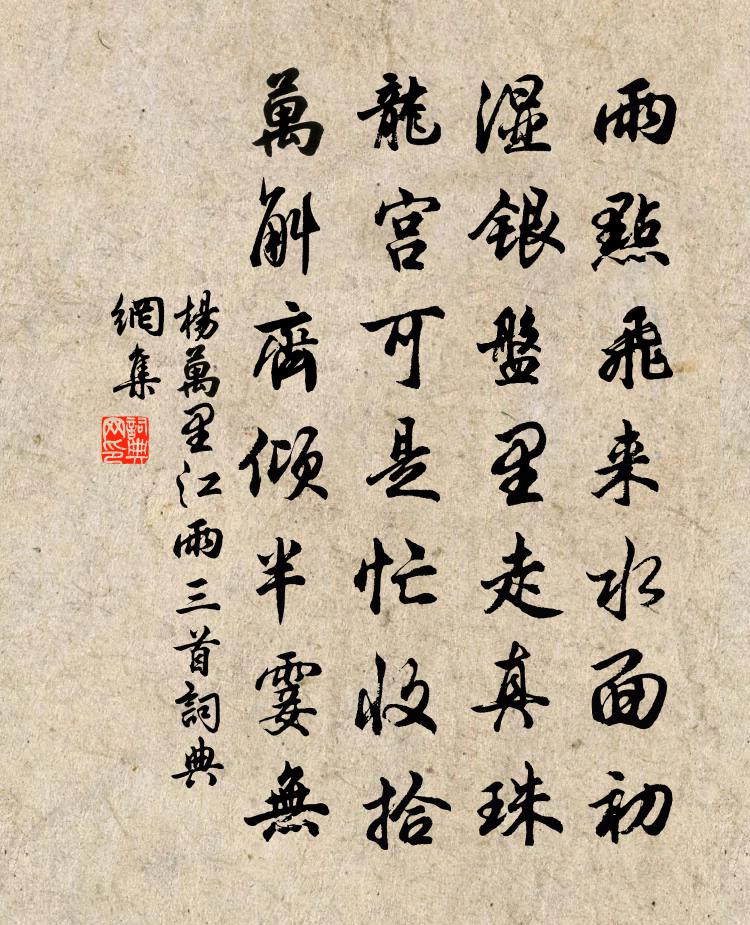 雨點飛来水面初
湿銀盤里走真珠
龍宫可是忙收拾
萬斛齊傾半霎無
楊萬里江雨三首詞典
網集
詞典
网印